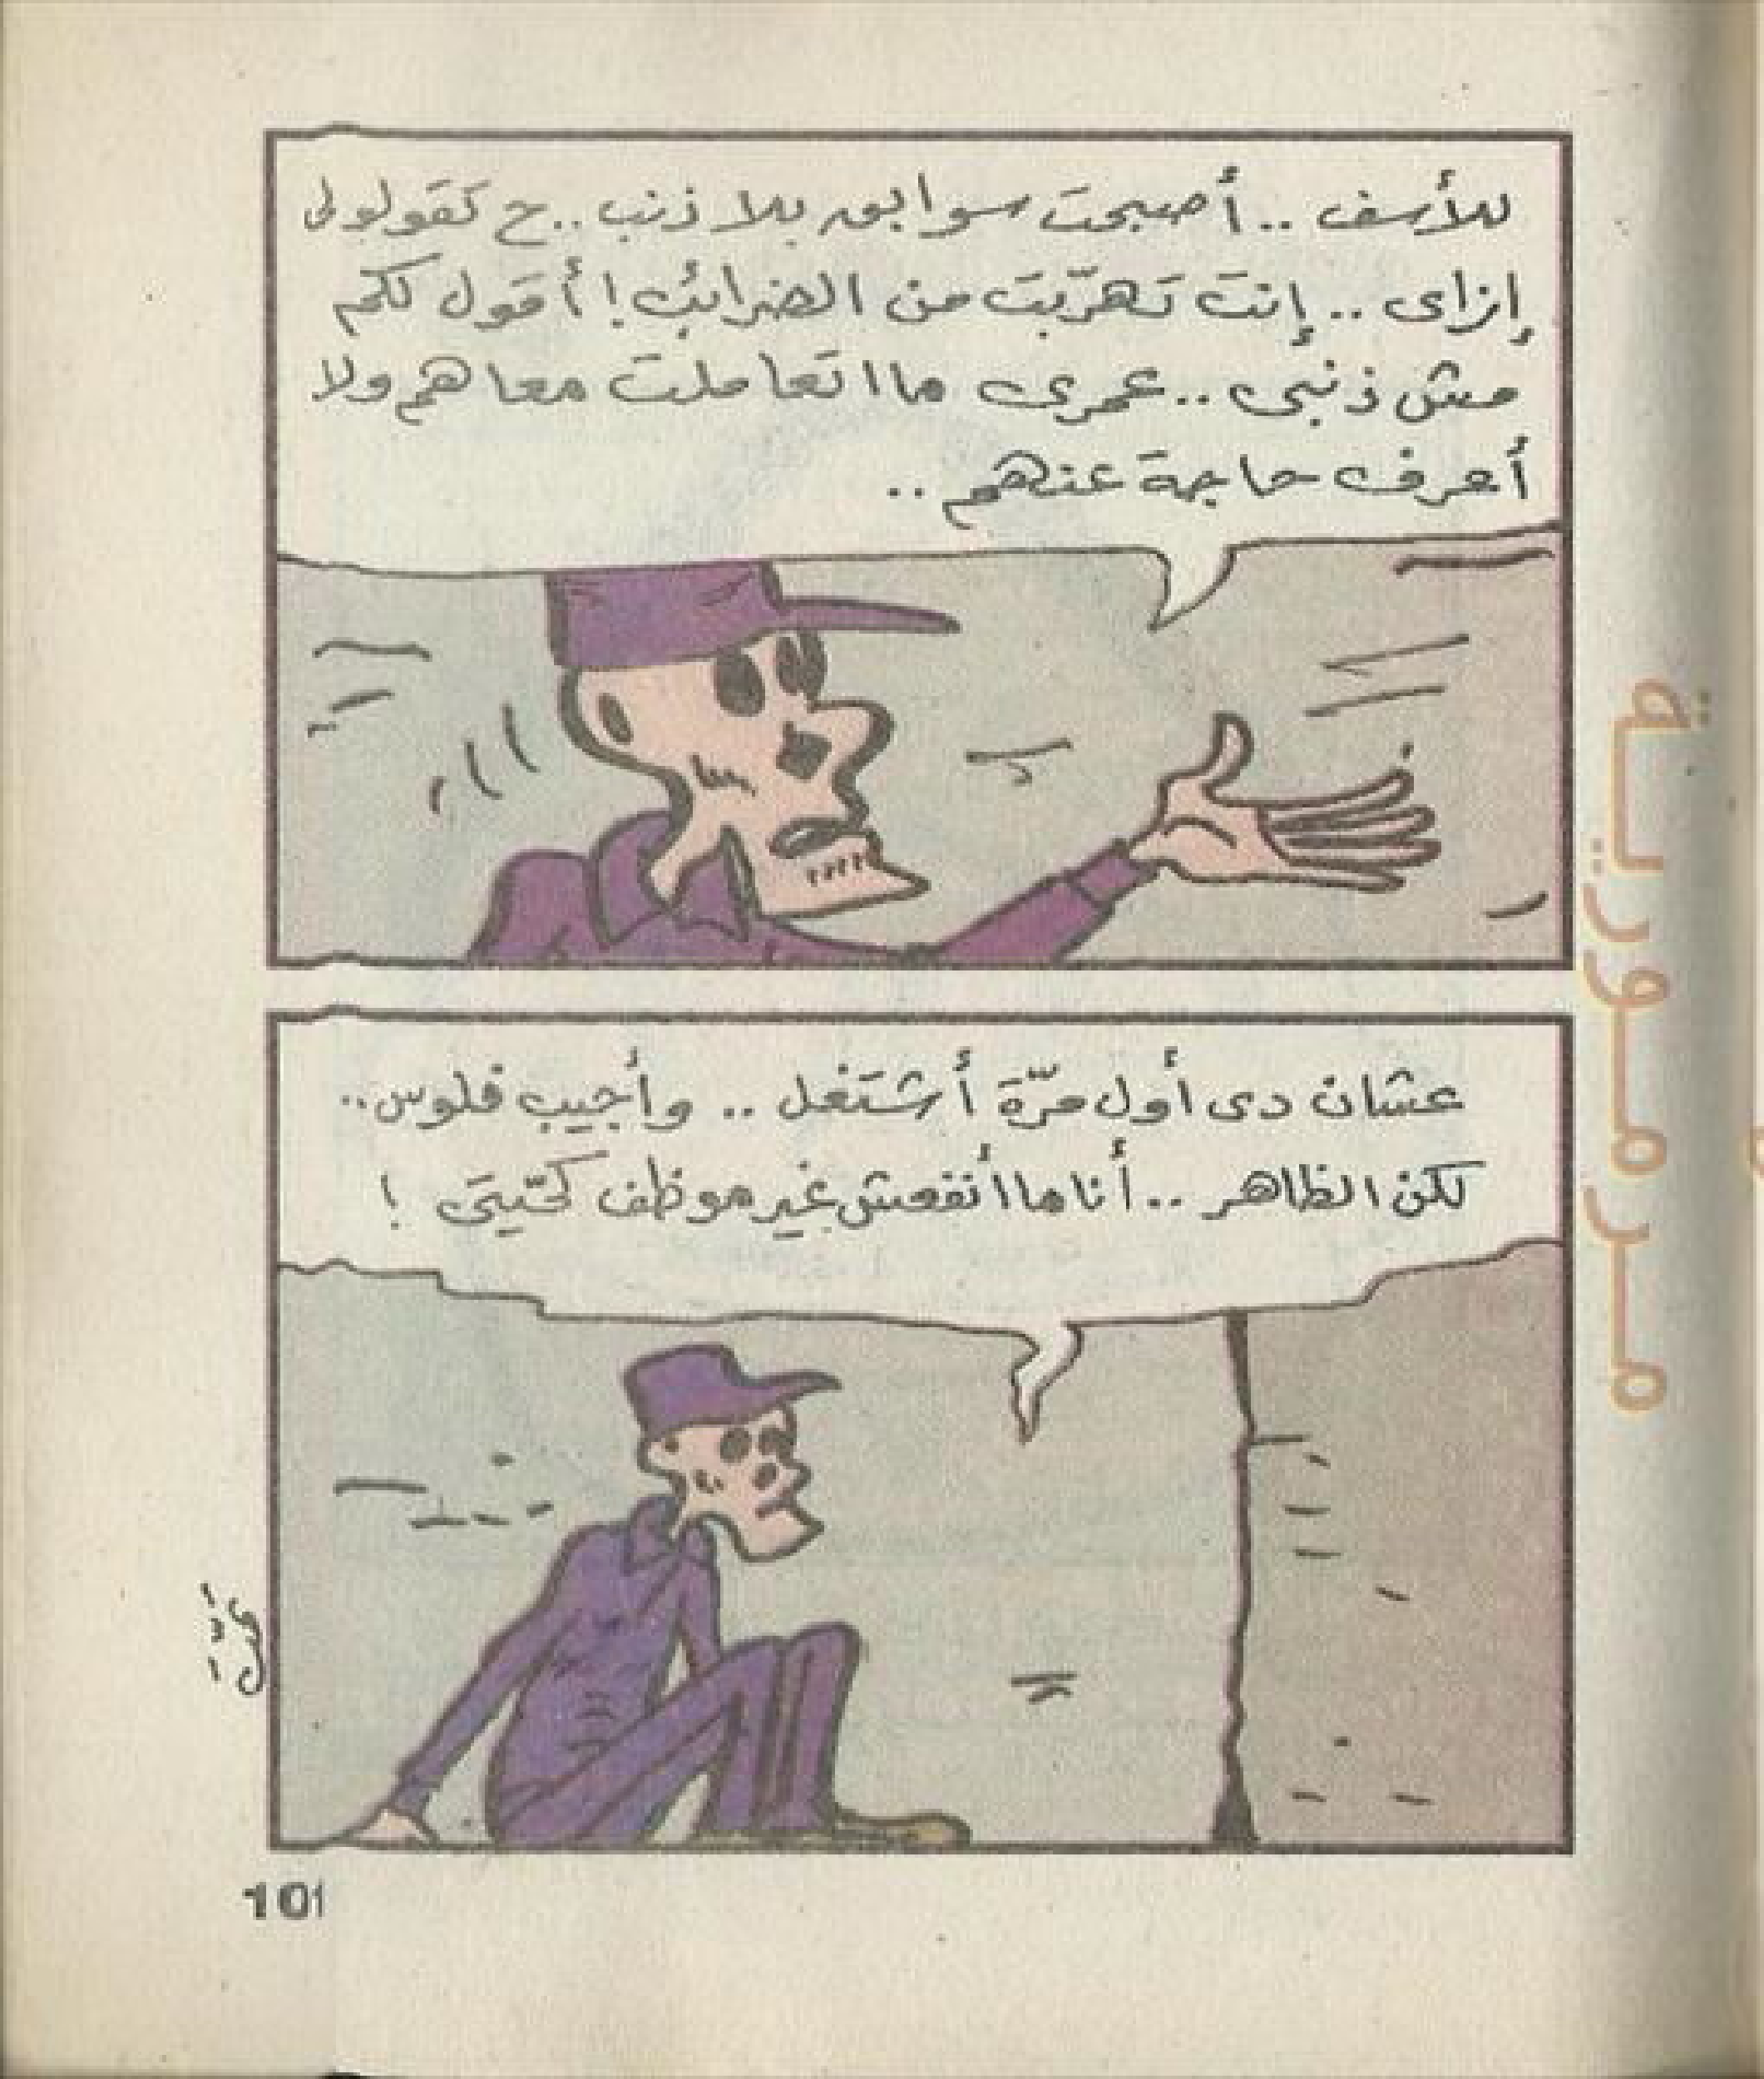 للأسف .. أصبحت سوابق بلا ذنب .. ح تقولولى
إزاى .. إنت تهرّبت من الضرائب ! أقول لكم
مش ذنبى .. عمرى ما اتعاملت معاهم ولا
أعرف حاجة عنهم ..
عشان دى أول مرّة أشتغل .. وأجيب فلوس ..
لكن الظاهر .. أنا ما أنفعش غير موظف كحّيتى !
101
مـرمـوريـة